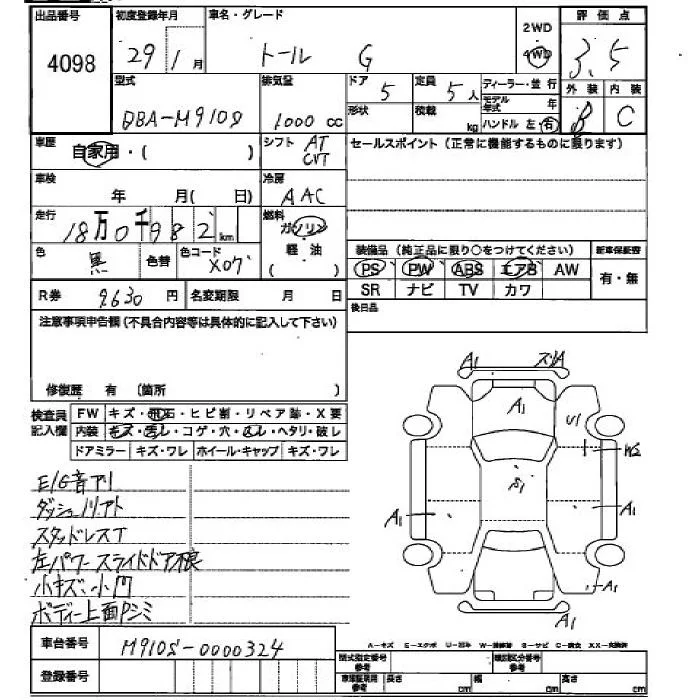 出品番号 初度登録年月 車名・グレード 評価点
4098 29年1月 トール G 2WD 4WD 3.5
型式 排気量 ドア 定員 ディーラー・並行 外装 内装
DBA-M910S 1000cc 5 5人 モデル年式 年 B C
形状 積載 kg ハンドル 左・右
車歴 自家用・( ) シフト AT CVT セールスポイント(正常に機能するものに限ります)
車検 年 月( 日) 冷房 AAC
走行 18万0千982km 燃料 ガソリン 軽油 ( )
色 黒 色替 色コード X07 装備品(純正品に限り○をつけてください) 新車保証書
PS PW ABS エアB AW 有・無
R券 9630円 名変期限 月 日 SR ナビ TV カワ
注意事項申告欄(不具合内容等は具体的に記入して下さい) 後日品
修復歴 有 (箇所 )
検査員記入欄 FW キズ・飛石・ヒビ割・リペア跡・X要
内装 キズ・汚レ・コゲ・穴・スレ・ヘタリ・破レ
ドアミラー キズ・ワレ ホイール・キャップ キズ・ワレ
A1 スリA
A1 U1
W2
S1
A1 A1
A1
A1
E/G音アリ
ダッシュ
スタッドレスT
左パワースライドドア不良
小キズ、小凹
ボディー上面Pシミ
車台番号 M910S-0000324
登録番号
A-キズ E-エクボ U-凹キ W-補修跡 S-サビ C-腐食 XX-交換済
型式指定番号 類別区分番号
長さ cm 幅 cm 高さ cm